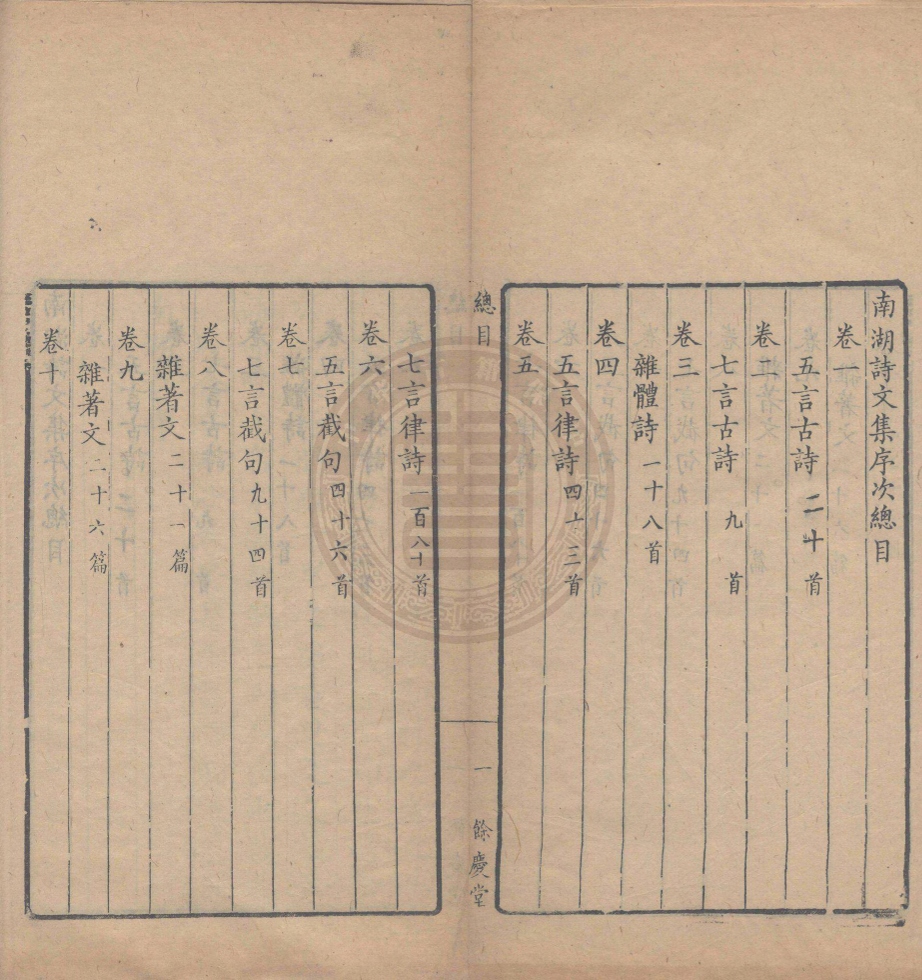 南湖詩文集序次總目
卷一
五言古詩 二十首
卷二
七言古詩 九首
卷三
雜體詩 一十八首
卷四
五言律詩 四十三首
卷五
總目
一
餘慶堂
七言律詩 一百八十首
卷六
五言截句 四十六首
卷七
七言截句 九十四首
卷八
雜著文 二十一篇
卷九
雜著文 二十六篇
卷十